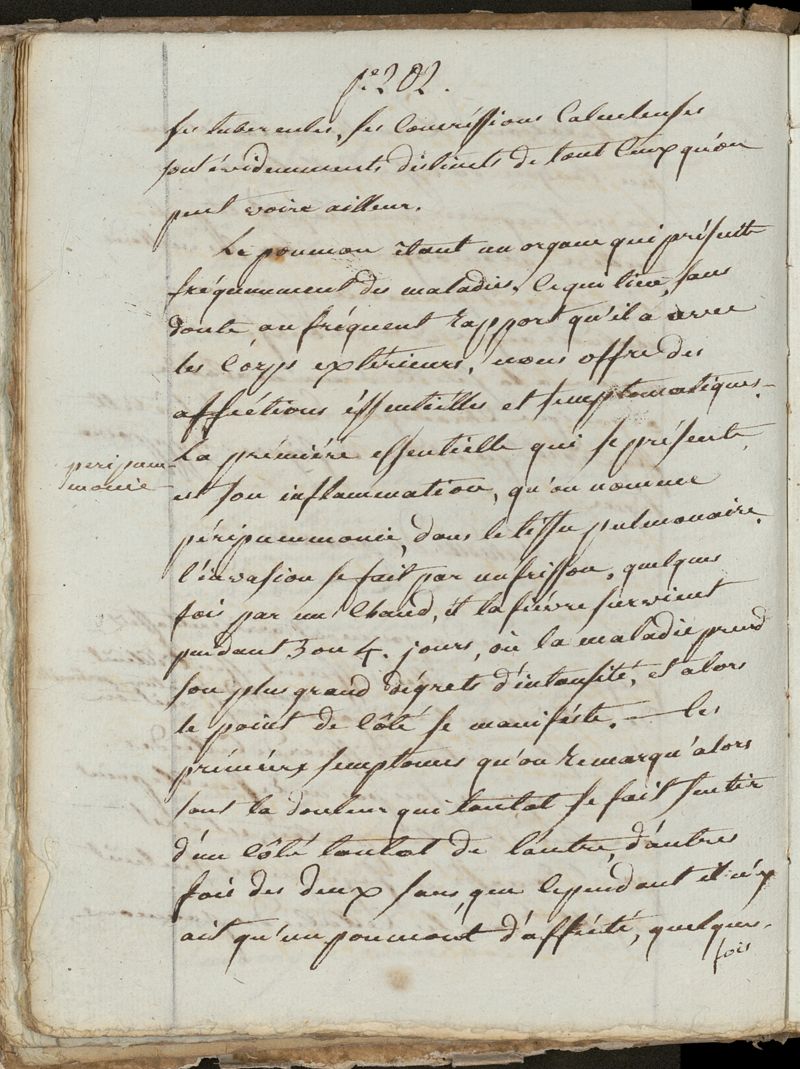 pe 202.
ses tubercules, ses concréssions calculeuses
sont évidemments distincts de tout ceux qu'on
peut voire ailleur.
Le poumon étant un organe qui présente
fréquemment des maladies, ce qui tien, sans
doute, au fréquent rapport qu'il a avec
les corps extérieurs, nous offre des
afféctions éssentielles et semptomatiques.
La prémiére essentielle qui se présente,
peripneu-
monie
est son inflammation, qu'on nomme
péripneumonie, dans le tissu pulmonaire.
l'invasion se fait par un frisson, quelques
fois par un chaud, et la fiévre survient
pendant 3 ou 4. jours, où la maladie prend
son plus grand dégrets d'intansité, et alors
le point de côté se manifeste. — les
prémiérx semptomes qu'on remarqu'alors
sont la douleur qui tantot se fait sentir
d'un côté tantot de l'autre, d'autres
fois des deux sans que cependant il n'y
ait qu'un poumont d'afféété, quelques-
fois